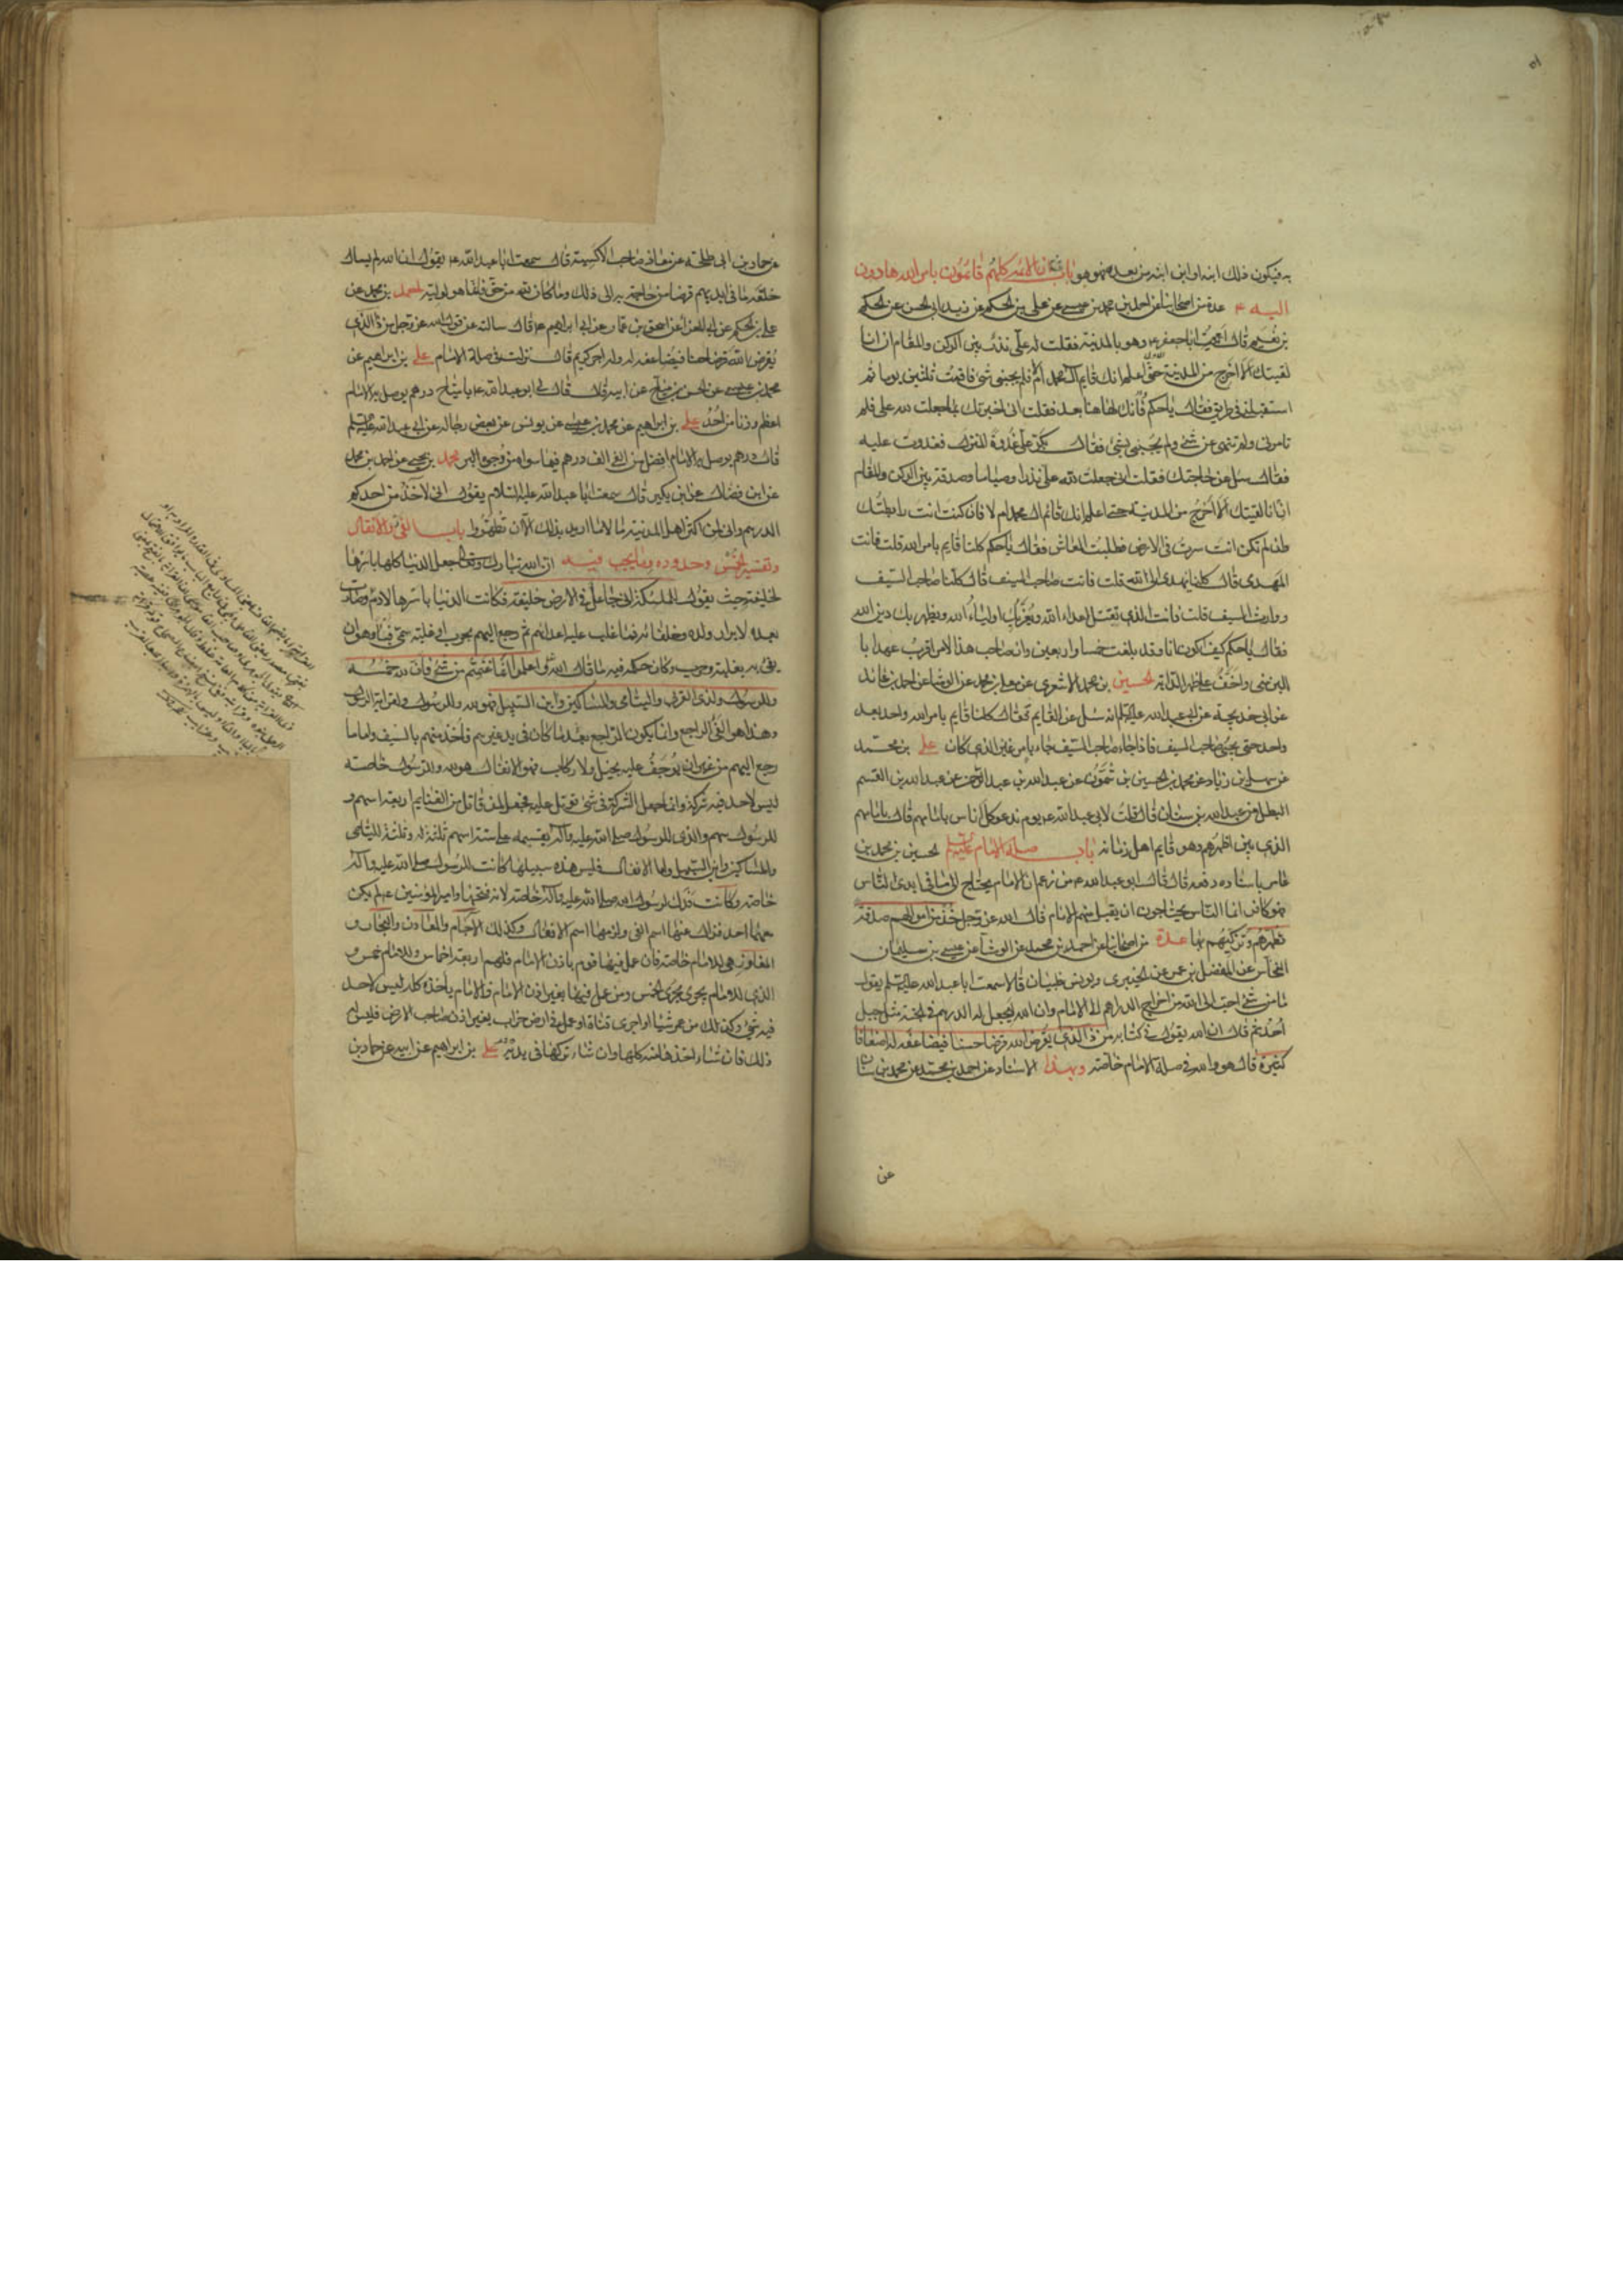 به فيكون ذلك ابنه او ابن ابنه من بعده فهو هو باب ان الائمه كلهم قائمون بامر الله هادون
اليه ع عدة من اصحابنا عن احمد بن محمد بن عيسى عن على بن الحكم عن زيد ابى الحسن عن الحكم
بن نعيم قال اتيت ابا جعفر ع وهو بالمدينة فقلت له على نذر بين الركن والمقام ان انا
لقيتك الا اخرج من المدينة حتى اعلم انك قايم آل محمد ام لا فلم يجبنى بشئ فاقمت ثلثين يوما ثم
استقبلنى فى طريق فقال يا حكم وانك لهاهنا بعد فقلت انى اخبرتك بما جعلت لله على فلم
تامرنى ولم تنهنى عن شئ ولم تجبنى بشئ فقال بكر على غدوة المنزل فغدوت عليه
فقال سل عن حاجتك فقلت انى جعلت لله على نذرا وصياما وصدقة بين الركن والمقام
ان انا لقيتك الا اخرج من المدينة حتى اعلم انك قائم آل محمد ام لا فان كنت انت رابطتك
وان لم تكن انت سرت فى الارض فطلبت المعاش فقال يا حكم كلنا قايم بامر الله قلت فانت
المهدى قال كلنا يهدى الى الله قلت فانت صاحب السيف قال كلنا صاحب السيف
ووارث السيف قلت فانت الذى تقتل اعداء الله ويعز بك اولياء الله ويظهر بك دين الله
فقال يا حكم كيف اكون انا وقد بلغت خمسا واربعين وان صاحب هذا الامر اقرب عهدا با
للبن منى واخف على ظهر الدابة الحسين بن محمد الاشعرى عن معلى بن محمد عن الوشا عن احمد بن عائذ
عن ابى خديجة عن ابى عبد الله عليه السلم انه سئل عن القايم فقال كلنا قايم بامر الله واحد بعد
واحد حتى يجئ صاحب السيف فاذا جاء صاحب السيف جاء بامر غير الذى كان على بن محمد
عن سهل بن زياد عن محمد بن الحسين بن شمون عن عبد الله بن عبد الرحمن عن عبد الله بن القسم
البطل عن عبد الله بن سنان قال قلت لابى عبد الله ع يوم ندعو كل اناس بامامهم قال امامهم
الذى بين اظهرهم وهو قايم اهل زمانه باب صلة الامام عليه السلم الحسين بن محمد بن
عامر باسناده رفعه قال قال ابو عبد الله ع من زعم ان الامام يحتاج الى ما فى ايدى الناس
فهو كافر انما الناس يحتاجون ان يقبل منهم الامام قال الله عز وجل خذ من اموالهم صدقة
تطهرهم وتزكيهم بها عدة من اصحابنا عن احمد بن محمد عن الوشا عن عيسى بن سليمان
النحاس عن المفضل بن عمر عن الخيبرى ويونس بن ظبيان قالا سمعت ابا عبد الله عليه السلم يقول
ما من شئ احب الى الله من اخراج الدراهم الى الامام وان الله ليجعل له الدرهم فى الجنة مثل جبل
احد ثم قال ان الله يقول فى كتابه من ذا الذى يقرض الله قرضا حسنا فيضاعفه له اضعافا
كثيرة قال هو والله فى صلة الامام خاصة وبهذا الاسناد عن احمد بن محمد عن محمد بن سنان
عن
عن حماد بن ابى طلحة عن معاذ صاحب الاكسية قال سمعت ابا عبد الله ع يقول ان الله لم يسال
خلقه ما فى ايديهم قرضا من حاجة به الى ذلك وما كان لله من حق فانما هو لوليه احمد بن محمد عن
على بن الحكم عن ابى المغرا عن اسحق بن عمار عن ابى ابراهيم ع قال سالته عن قول الله عز وجل من ذا الذى
يقرض الله قرضا حسنا فيضاعفه له وله اجر كريم قال نزلت فى صلة الامام على بن ابراهيم عن
محمد بن عيسى عن الحسن بن مياح عن ابيه قال قال لى ابو عبد الله ع يا مياح درهم يوصل به الامام
اعظم وزنا من احد على بن ابراهيم عن محمد بن عيسى عن يونس عن بعض رجاله عن ابى عبد الله عليه السلم
قال درهم يوصل به الامام افضل من الفى الف درهم فيما سواه من وجوه البر محمد بن يحيى عن احمد بن محمد
عن ابن فضال عن ابن بكير قال سمعت ابا عبد الله عليه السلام يقول انى لآخذ من احدكم
الدرهم وانى لمن اكثر اهل المدينة مالا ما اريد بذلك الا ان تطهروا باب الفئ والانفال
وتفسير الخمس وحدوده وما يجب فيه ان الله تبارك وتعالى جعل الدنيا كلها باسرها
لخليفته حيث يقول للملئكة انى جاعل فى الارض خليفة فكانت الدنيا باسرها لادم وصارت
بعده لابرار ولده وخلفائه فما غلب عليه اعداؤهم ثم رجع اليهم بحرب او غلبة سمى فيئا وهو ان
يفئ اليهم بغلبة وحرب وكان حكمه فيه ما قال الله واعلموا انما غنمتم من شئ فان لله خمسه
وللرسول ولذى القربى واليتامى والمساكين وابن السبيل فهو لله وللرسول ولقرابة الرسول
وهذا هو الفئ الراجع وانما يكون الراجع بعد ما كان فى يد غيرهم فاخذ منهم بالسيف واما ما
رجع اليهم من غير ان يوجف عليه بخيل ولا ركاب فهو الانفال هو لله وللرسول خاصة
ليس لاحد فيه شركة وانما جعل الشركة فى شئ قوتل عليه فجعل لمن قاتل من الغنايم اربعة اسهم و
للرسول سهم والذى للرسول صلى الله عليه وآله يقسمه على ستة اسهم ثلثة له وثلثة لليتامى
والمساكين وابن السبيل واما الانفال فليس هذه سبيلها كانت للرسول صلى الله عليه وآله
خاصة وكانت فدك لرسول الله صلى الله عليه وآله خاصة لانه فتحها وامير المؤمنين ع لم يكن
معهما احد فزال عنها اسم الفئ ولزمها اسم الانفال وكذلك الآجام والمعادن والبحار و
المفاوز هى للامام خاصة فان عمل فيها قوم باذن الامام فلهم اربعة اخماس وللامام خمس و
الذى للامام يجرى مجرى الخمس ومن عمل فيها بغير اذن الامام فالامام ياخذه كله ليس لاحد
فيه شئ وكذلك من عمر شيئا او اجرى قناة او عمل فى ارض خراب بغير اذن صاحب الارض فليس له
ذلك فان شاء اخذها منه كلها وان شاء تركها فى يده على بن ابراهيم عن ابيه عن حماد بن